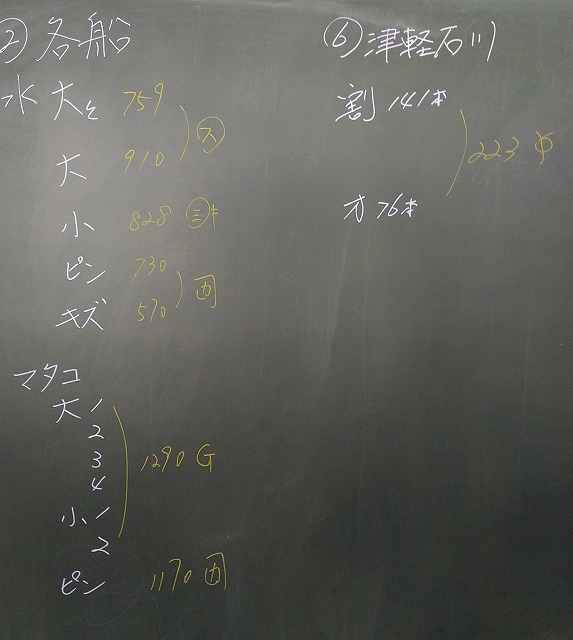 ② 各船
水 大 759
大 910 ㋜
小 828
ピン 730
キズ 570
マタコ
大 1
2
3
4
小 1
2
1290 G
ピン 1170
⑥ 津軽石川
割 141本
オ 76本
223